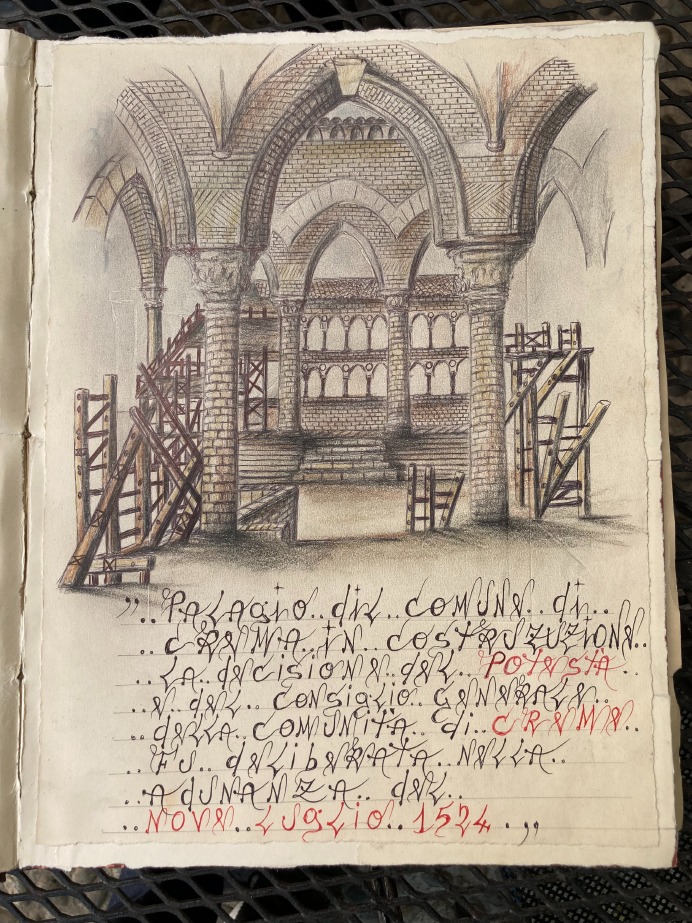 „.. PALAGIO.. dEL.. COMUNE.. di..
.. CREMA.. IN.. COSTRUZUZIONE..
.. LA.. dECISIONE.. dEL.. POTESTA..
.. E.. dEL.. CONSIGLIO.. GENERALE..
.. dELLA.. COMUNITA.. di.. CREME..
.. FU.. dELIbERATA.. NELLA..
.. AdUNANZA.. dEL..
.. NOVE.. LUGLIO.. 1524..„